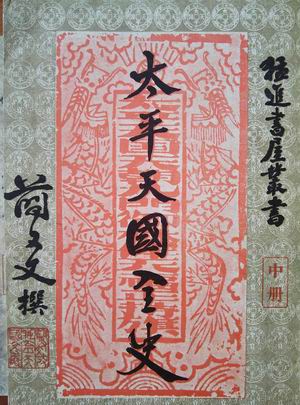 猛進書屋叢書
中册
太平天國全史
簡又文撰